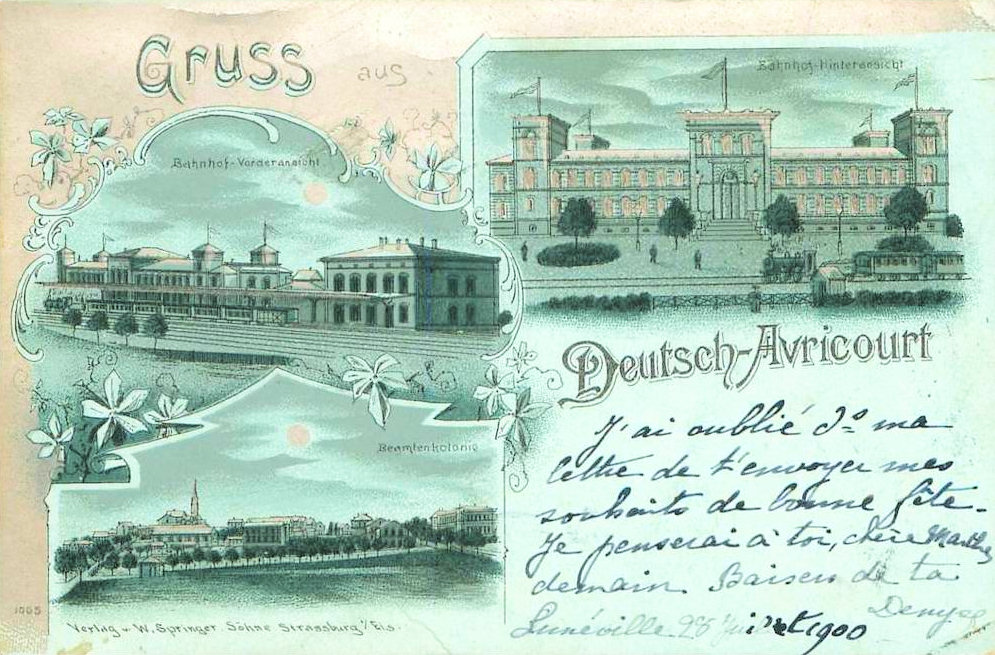 Gruss aus
Bahnhof-Vorderansicht
Bahnhof-Hinteransicht
Deutsch-Avricourt
Beamtenkolonie
J'ai oublié ds ma
lettre de t'envoyer mes
souhaits de bonne fête.
Je penserai à toi, chère Marthe
demain Baisers de ta
Denyse
Lunéville 1900
1005
Verlag v. W. Springer Söhne Strassburg i/Els.